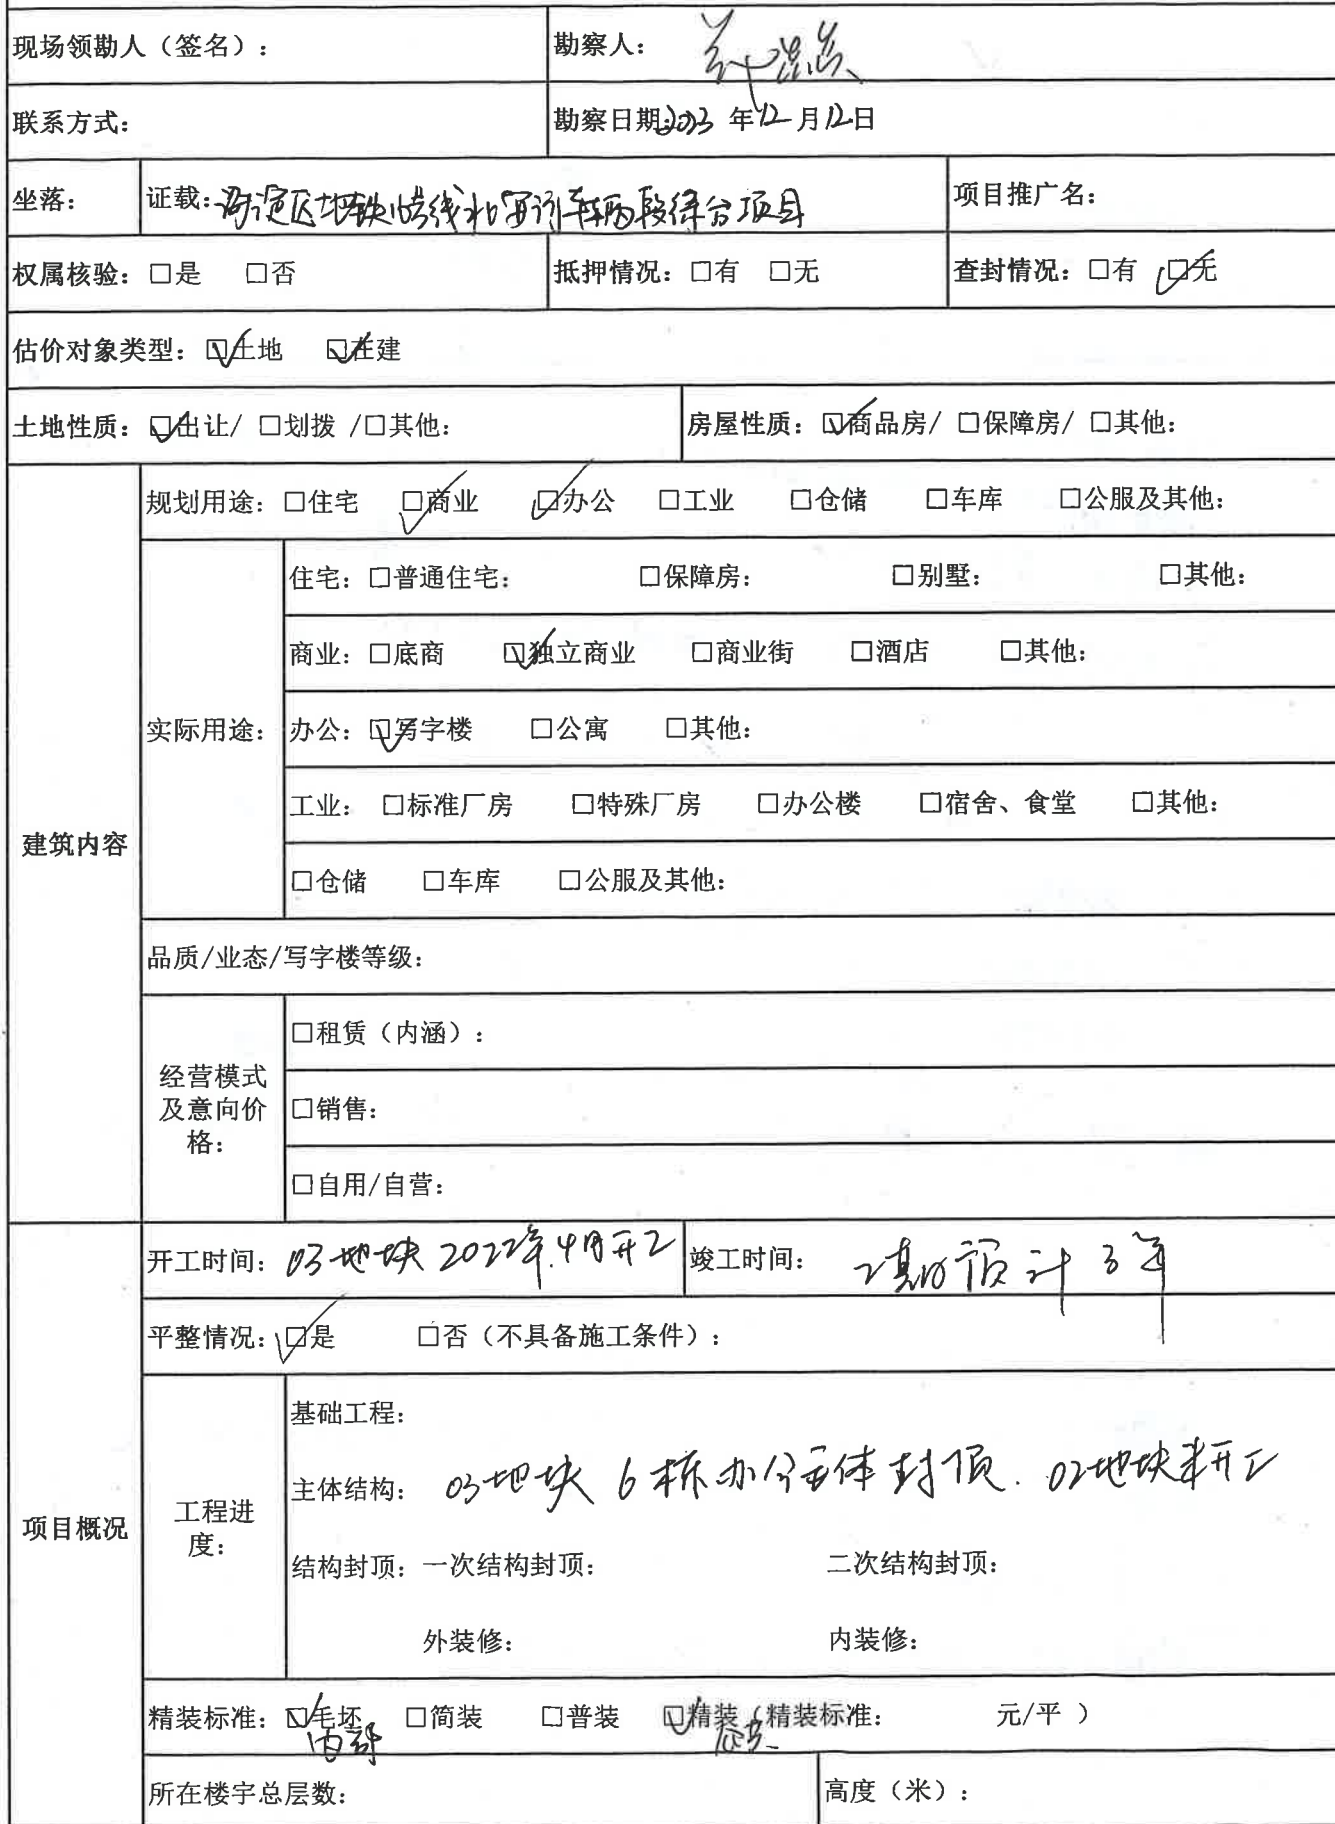 现场领勘人（签名）：
勘察人：
联系方式：
勘察日期：2023 年 12 月 12 日
坐落：
证载：海淀区地铁 线北安河车辆段综合项目
项目推广名：
权属核验：□是 □否
抵押情况：□有 □无
查封情况：□有 ☑无
估价对象类型：☑土地 ☑在建
土地性质：☑出让/ □划拨 /□其他：
房屋性质：☑商品房/ □保障房/ □其他：
建筑内容
规划用途：□住宅 ☑商业 ☑办公 □工业 □仓储 □车库 □公服及其他：
实际用途：
住宅：□普通住宅： □保障房： □别墅： □其他：
商业：□底商 ☑独立商业 □商业街 □酒店 □其他：
办公：☑写字楼 □公寓 □其他：
工业： □标准厂房 □特殊厂房 □办公楼 □宿舍、食堂 □其他：
□仓储 □车库 □公服及其他：
品质/业态/写字楼等级：
经营模式
及意向价
格：
□租赁（内涵）：
□销售：
□自用/自营：
项目概况
开工时间：03地块 2022年.4月开工
竣工时间： 工期预计3年
平整情况：☑是 □否（不具备施工条件）：
工程进
度：
基础工程：
主体结构： 03地块 6栋办公主体封顶. 02地块未开工
结构封顶：一次结构封顶： 二次结构封顶：
外装修： 内装修：
精装标准：☑毛坯 □简装 □普装 ☑精装（精装标准： 元/平 ）
内部
所在楼宇总层数：
高度（米）：